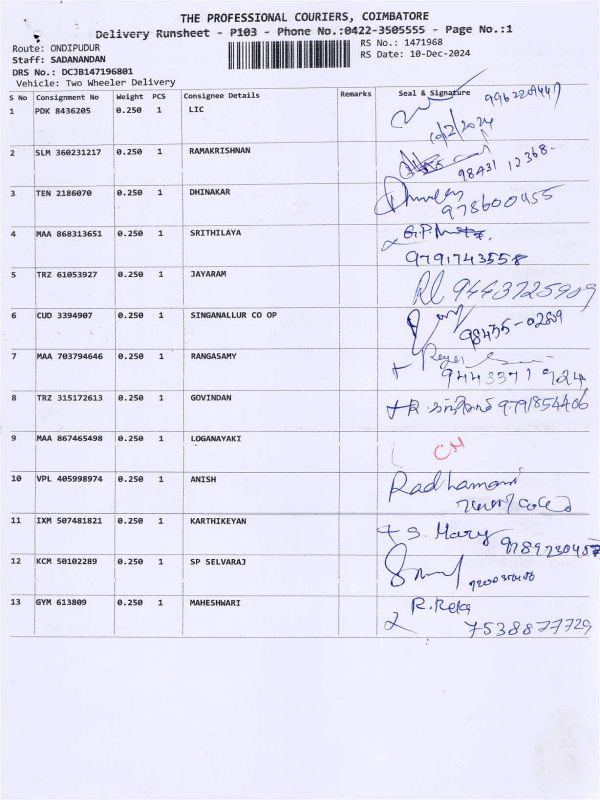 THE PROFESSIONAL COURIERS, COIMBATORE
Delivery Runsheet - P103 - Phone No.:0422-3505555 - Page No.:1
Route: ONDIPUDUR
RS No.: 1471968
Staff: SADANANDAN
RS Date: 10-Dec-2024
DRS No.: DCJB147196801
Vehicle: Two Wheeler Delivery
S No Consignment No Weight PCS Consignee Details Remarks Seal & Signature
1 PDK 8436205 0.250 1 LIC
2 SLM 360231217 0.250 1 RAMAKRISHNAN 98431 12368-
3 TEN 2186070 0.250 1 DHINAKAR 978600455
4 MAA 868313651 0.250 1 SRITHILAYA
9791743558
5 TRZ 61053927 0.250 1 JAYARAM 9443725909
6 CUD 3394907 0.250 1 SINGANALLUR CO OP 98435-02809
7 MAA 703794646 0.250 1 RANGASAMY
9443371924
8 TRZ 315172613 0.250 1 GOVINDAN 9791854406
9 MAA 867465498 0.250 1 LOGANAYAKI
10 VPL 405998974 0.250 1 ANISH Radhamani
11 IXM 507481821 0.250 1 KARTHIKEYAN S. Mary
12 KCM 50102289 0.250 1 SP SELVARAJ
13 GYM 613809 0.250 1 MAHESHWARI R.Reka
7538877729